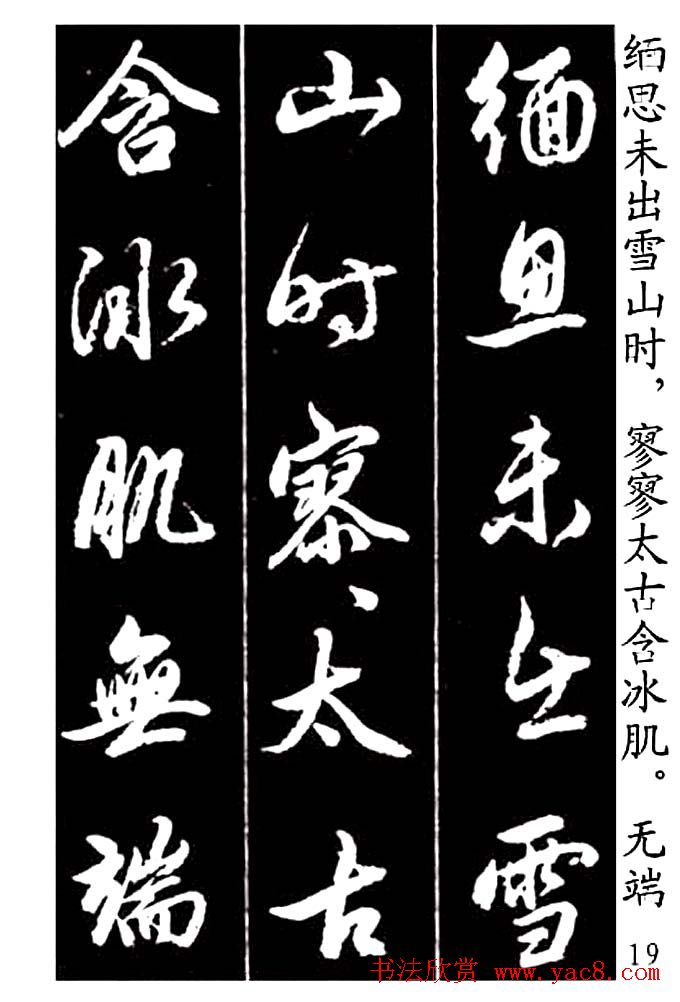 缅思未出雪山时，寥寥太古含冰肌。 无端 19
缅思未出雪
山时寥、太古
含冰肌無端
书法欣赏 www.yac8.com